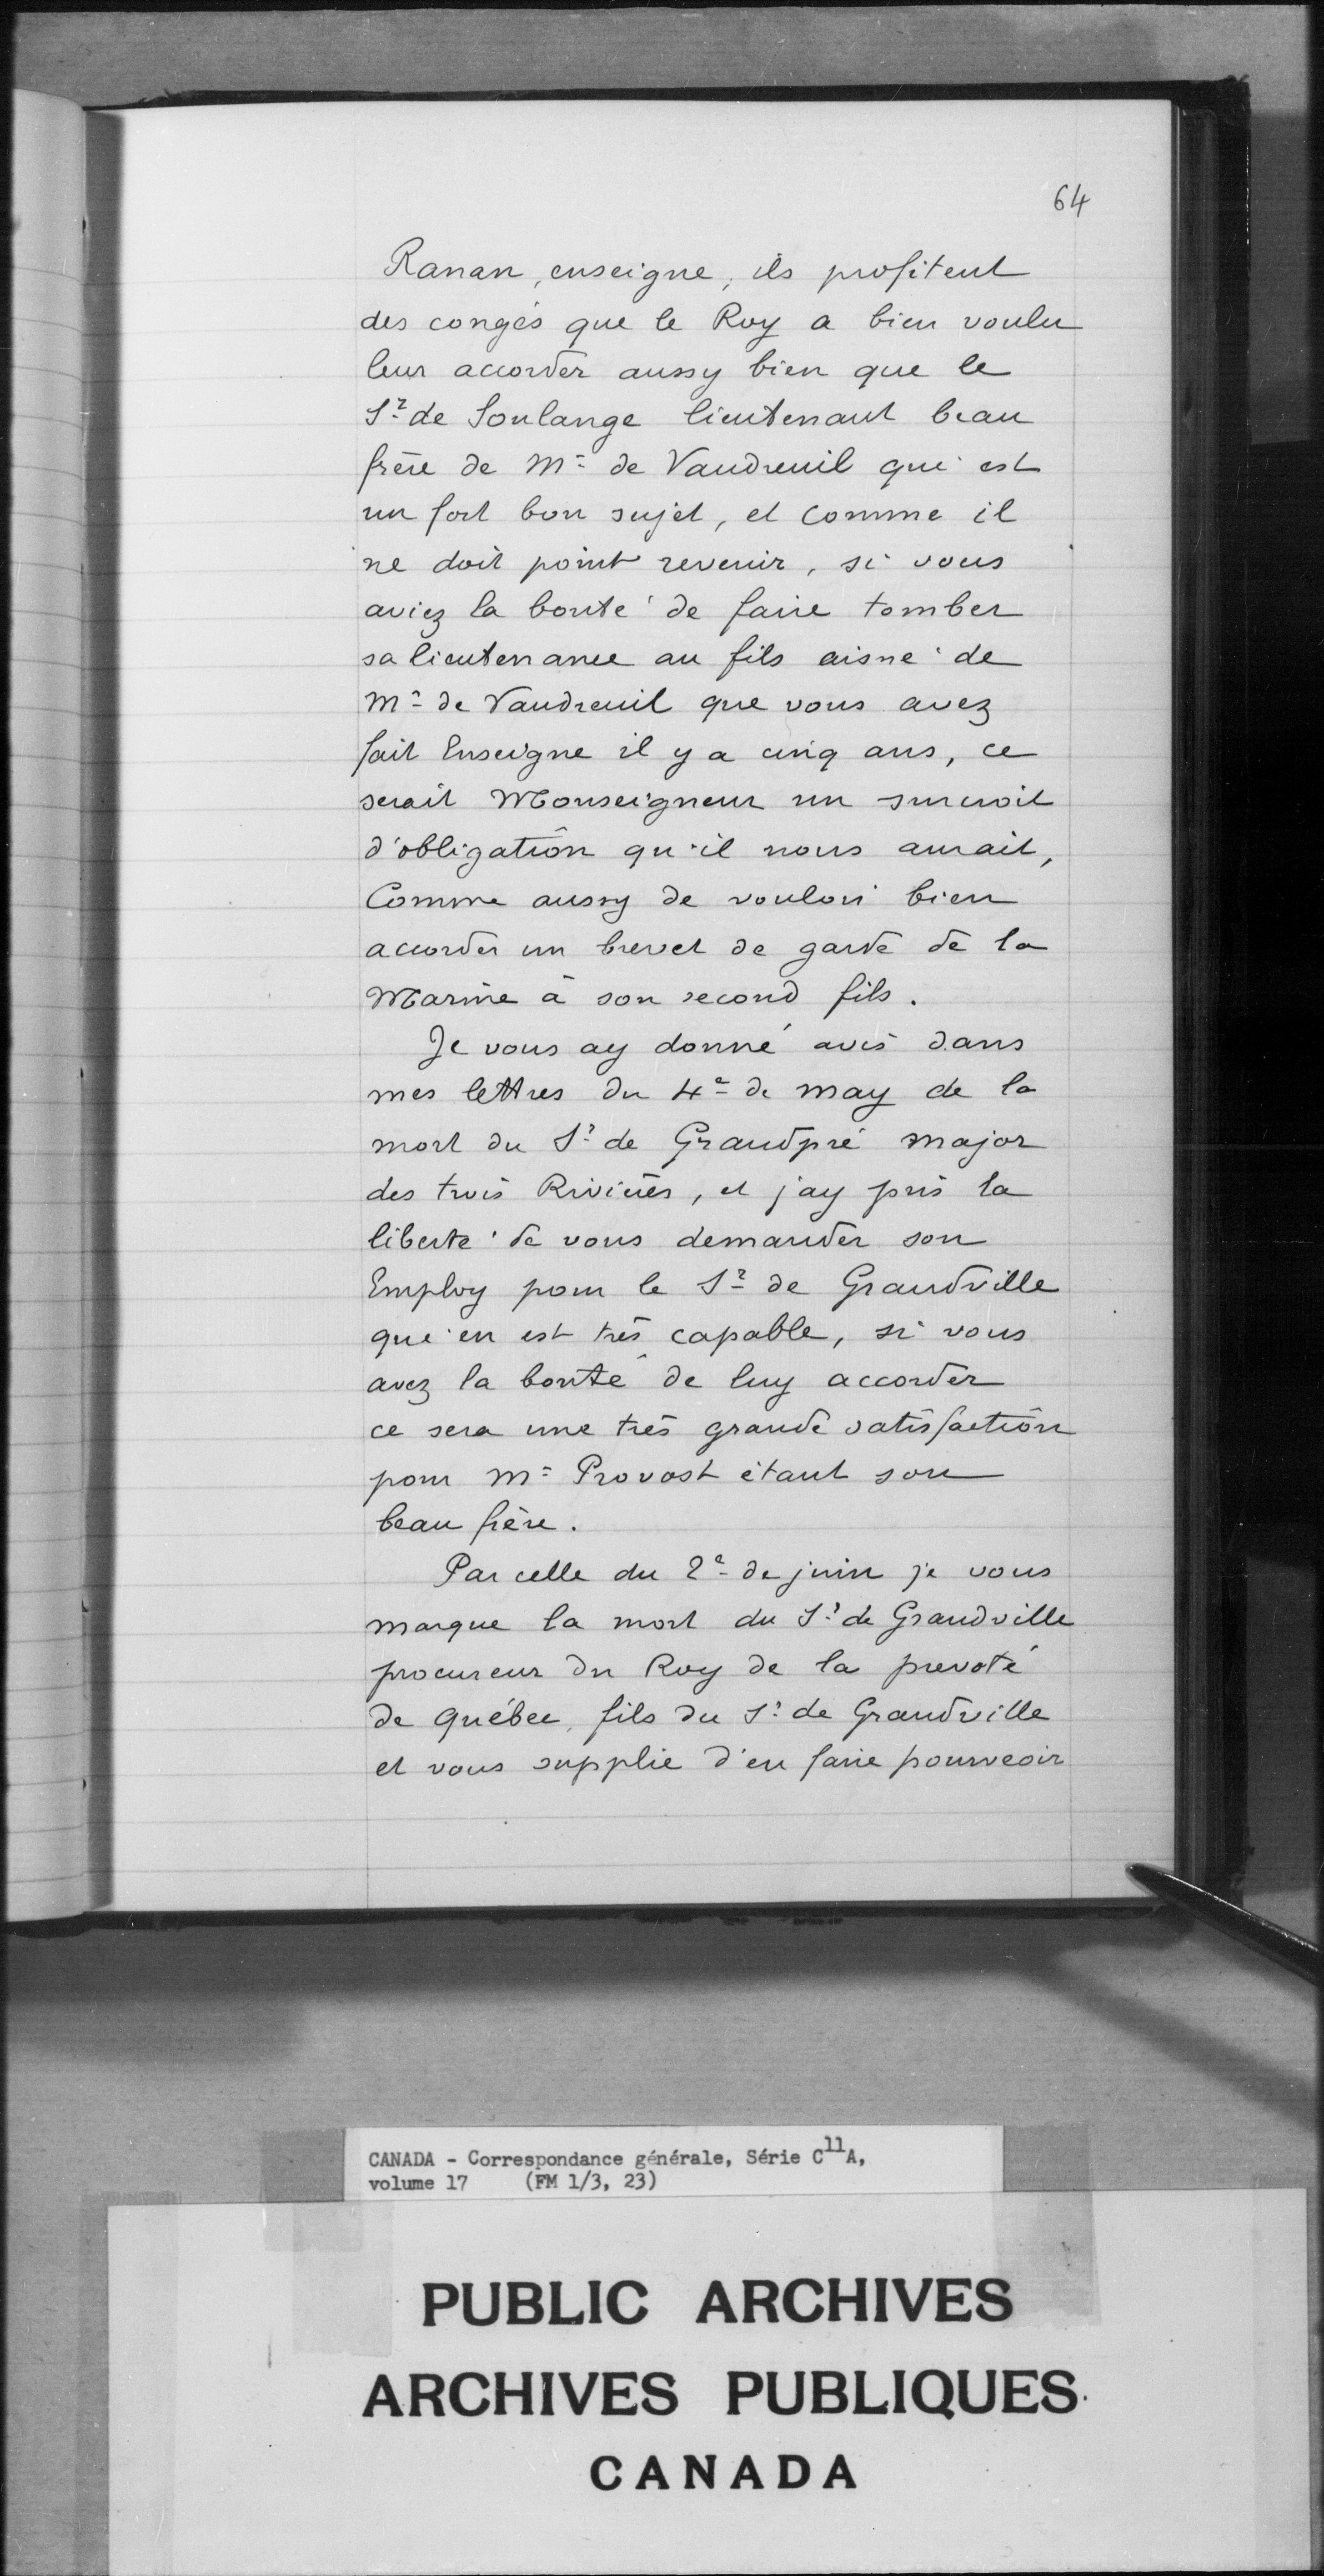 64
Ranan, enseigne, ils profitent
des congés que le Roy a bien voulu
leur accorder aussy bien que le
Sr de Soulange lieutenant beau
frère de Mr de Vaudreuil qui est
un fort bon sujet, et comme il
ne doit point revenir, si vous
aviez la bonté de faire tomber
sa lieutenance au fils aisné de
Mr de Vaudreuil que vous avez
fait Enseigne il y a cinq ans, ce
serait Monseigneur un surcroit
d'obligation qu'il nous aurait,
Comme aussy de vouloir bien
accorder un brevet de garde de la
Marine à son second fils.
Je vous ay donné avis dans
mes lettres du 4e de may de la
mort du Sr de Grandpré major
des trois Rivières, et j'ay pris la
liberté de vous demander son
Employ pour le Sr de Grandville
qui en est très capable, si vous
avez la bonté de luy accorder
ce sera une très grande satisfaction
pour Mr Provost étant son
beau frère.
Par celle du 2e de juin je vous
marque la mort du Sr de Grandville
procureur du Roy de la prevoté
de Québec, fils du Sr de Grandville
et vous supplie d'en faire pourveoir
CANADA - Correspondance générale, Série C11A,
volume 17 (FM 1/3, 23)
PUBLIC ARCHIVES
ARCHIVES PUBLIQUES
CANADA